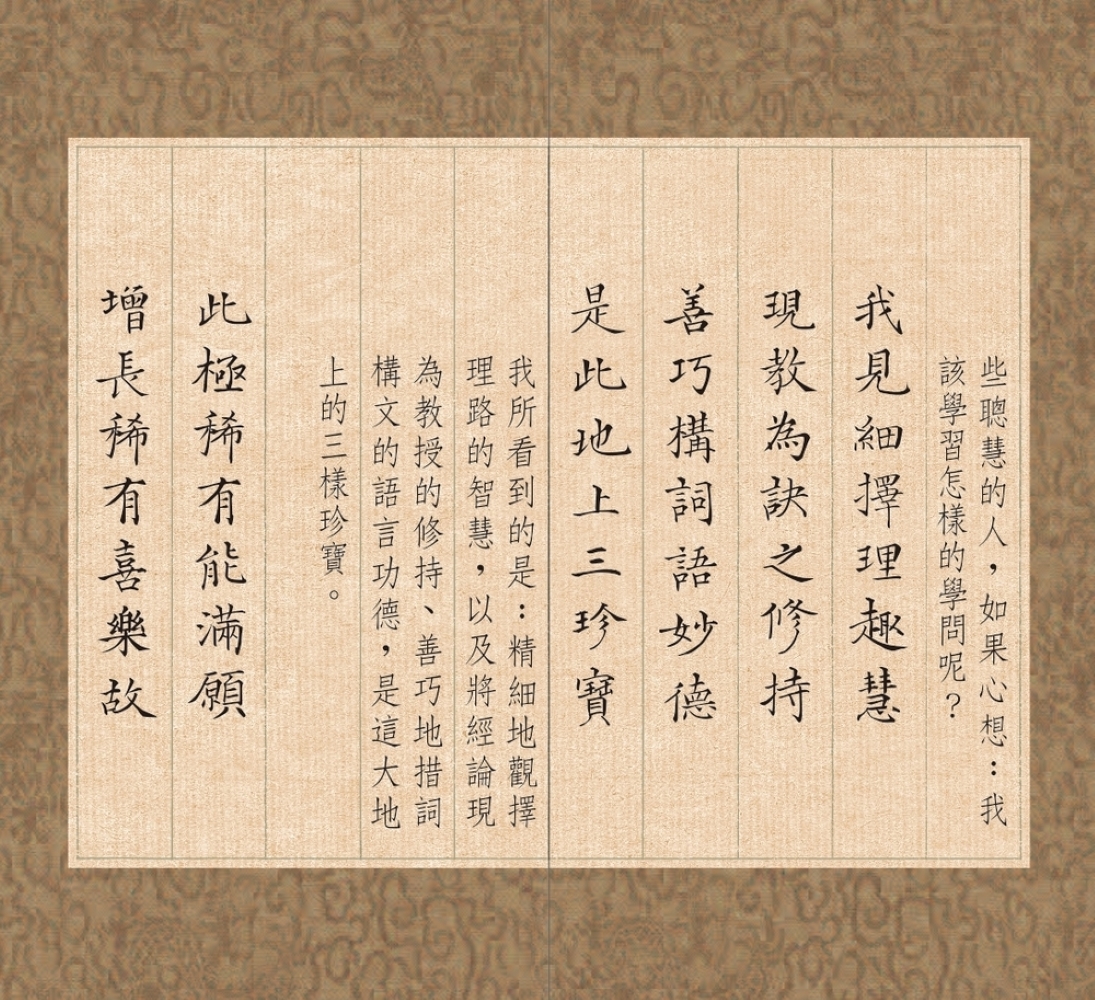 些聰慧的人，如果心想：我
該學習怎樣的學問呢？
我見細擇理趣慧
現教為訣之修持
善巧構詞語妙德
是此地上三珍寶
我所看到的是：精細地觀擇
理路的智慧，以及將經論現
為教授的修持、善巧地措詞
構文的語言功德，是這大地
上的三樣珍寶。
此極稀有能滿願
增長稀有喜樂故